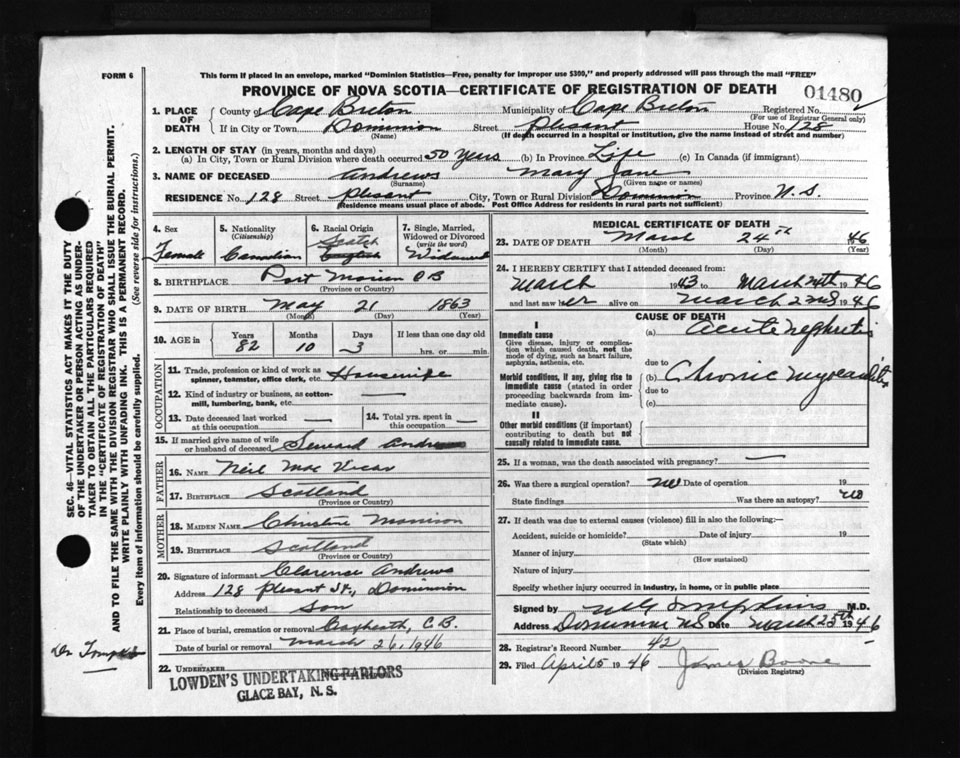 FORM 6
This form if placed in an envelope, marked "Dominion Statistics—Free, penalty for improper use $300," and properly addressed will pass through the mail "FREE"
PROVINCE OF NOVA SCOTIA—CERTIFICATE OF REGISTRATION OF DEATH
01480
1. PLACE OF DEATH County of Cape Breton Municipality of Cape Breton Registered No.
(For use of Registrar General only)
If in City or Town Dominion Street Plesant House No. 128
(Name) (If death occurred in a hospital or institution, give the name instead of street and number)
2. LENGTH OF STAY (in years, months and days)
(a) In City, Town or Rural Division where death occurred 50 years (b) In Province Life (c) In Canada (if immigrant)
3. NAME OF DECEASED Andrews Mary Jane
(Surname) (Given name or names)
RESIDENCE No. 128 Street Plesant City, Town or Rural Division Dominion Province N.S.
(Residence means usual place of abode. Post Office Address for residents in rural parts not sufficient)
4. Sex
Female
5. Nationality
(Citizenship)
Canadian
6. Racial Origin
Scotch
English
7. Single, Married, Widowed or Divorced
(write the word)
Widowed
8. BIRTHPLACE Port Morien CB
(Province or Country)
9. DATE OF BIRTH May 21 1863
(Month) (Day) (Year)
10. AGE in Years Months Days If less than one day old
82 10 3 hrs. or min.
OCCUPATION
11. Trade, profession or kind of work as spinner, teamster, office clerk, etc. Housewife
12. Kind of industry or business, as cotton-mill, lumbering, bank, etc.
13. Date deceased last worked at this occupation
14. Total yrs. spent in this occupation
15. If married give name of wife or husband of deceased Seward Andrews
FATHER
16. NAME Neil Mac Vicar
17. BIRTHPLACE Scotland
(Province or Country)
MOTHER
18. MAIDEN NAME Christine Morrison
19. BIRTHPLACE Scotland
(Province or Country)
20. Signature of informant Clarence Andrews
Address 128 Plesant St., Dominion
Relationship to deceased Son
21. Place of burial, cremation or removal Coxheath, C.B.
Date of burial or removal March 26, 1946
22. UNDERTAKER
LOWDEN'S UNDERTAKING PARLORS
GLACE BAY, N. S.
MEDICAL CERTIFICATE OF DEATH
23. DATE OF DEATH March 24th 46
(Month) (Day) (Year)
24. I HEREBY CERTIFY that I attended deceased from:
March 1943 to March 24th 1946
and last saw her alive on March 23rd 1946
CAUSE OF DEATH
I
Immediate cause
Give disease, injury or complication which caused death, not the mode of dying, such as heart failure, asphyxia, asthenia, etc.
(a) Acute nephritis
due to
Morbid conditions, if any, giving rise to immediate cause (stated in order proceeding backwards from immediate cause).
(b) Chronic myocarditis
due to
(c)
II
Other morbid conditions (if important) contributing to death but not causally related to immediate cause.
25. If a woman, was the death associated with pregnancy?
26. Was there a surgical operation? no Date of operation 19
State findings Was there an autopsy? no
27. If death was due to external causes (violence) fill in also the following:—
Accident, suicide or homicide? Date of injury 19
(State which)
Manner of injury
(How sustained)
Nature of injury
Specify whether injury occurred in industry, in home, or in public place
Signed by Tompkins M.D.
Address Dominion NS Date March 25th 1946
28. Registrar's Record Number 42
29. Filed April 5 1946 James Boone
(Division Registrar)
SEC. 46—VITAL STATISTICS ACT MAKES IT THE DUTY
OF THE UNDERTAKER OR PERSON ACTING AS UNDER-
TAKER TO OBTAIN ALL THE PARTICULARS REQUIRED
IN THE "CERTIFICATE OF REGISTRATION OF DEATH"
AND TO FILE THE SAME WITH THE DIVISION REGISTRAR WHO SHALL ISSUE THE BURIAL PERMIT.
WRITE PLAINLY WITH UNFADING INK. THIS IS A PERMANENT RECORD.
Every item of Information should be carefully supplied. (See reverse side for instructions.)
Dr Tompkins